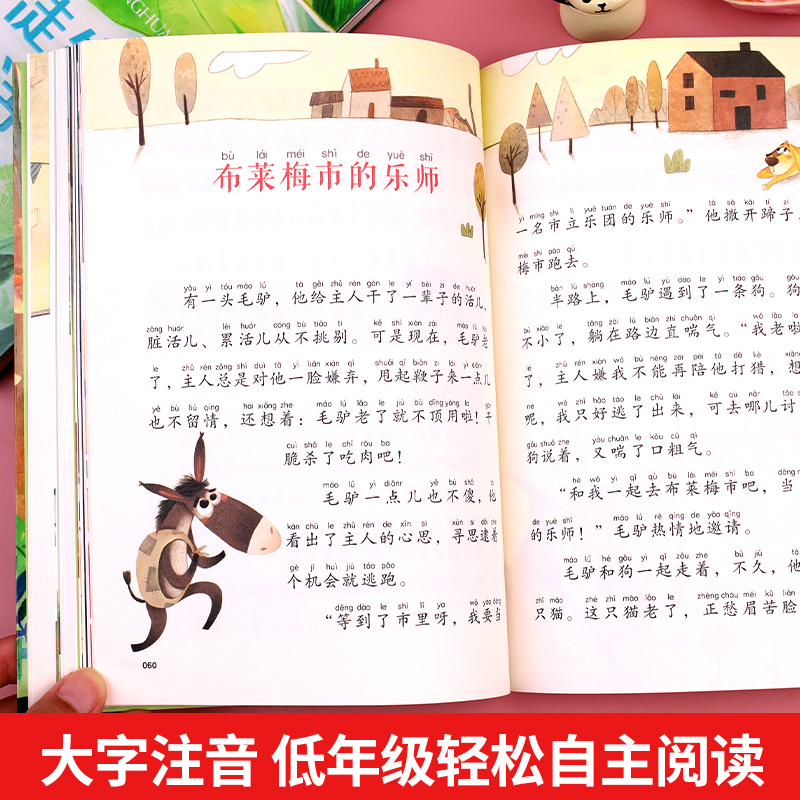 bù lái méi shì de yuè shī
布莱梅市的乐师
yǒu yì tóu máo lǘ tā gěi zhǔ rén gàn le yí bèi zi de huór
有一头毛驴，他给主人干了一辈子的活儿、
zāng huór lèi huór cóng bù tiāo ti kě shì xiàn zài máo lǘ lǎo
脏活儿、累活儿从不挑剔。可是现在，毛驴老
le zhǔ rén zǒng shì duì tā yì liǎn xián qì shuǎi qǐ biān zi lái yì diǎnr
了，主人总是对他一脸嫌弃，甩起鞭子来一点儿
yě bù liú qíng hái xiǎng zhe máo lǘ lǎo le jiù bù dǐng yòng la
也不留情，还想着：毛驴老了就不顶用啦！干
cuì shā le chī ròu ba
脆杀了吃肉吧！
máo lǘ yì diǎnr yě bù shǎ tā
毛驴一点儿也不傻，他
kàn chū le zhǔ rén de xīn si xún si zhe
看出了主人的心思，寻思逮着
gè jī huì jiù táo pǎo
个机会就逃跑。
děng dào le shì lǐ ya wǒ yào dāng
“等到了市里呀，我要当
060
yì míng shì lì yuè tuán de yuè shī tā sā kāi tí zi
一名市立乐团的乐师。”他撒开蹄子
méi shì pǎo qù
梅市跑去。
bàn lù shang máo lǘ yù dào le yì tiáo gǒu gǒu
半路上，毛驴遇到了一条狗。狗
bù xiǎo le tǎng zài lù biān zhí chuǎn qì wǒ lǎo la
不小了，躺在路边直喘气。“我老啦
le zhǔ rén xián wǒ bù néng zài péi tā dǎ liè xiǎng
了，主人嫌我不能再陪他打猎，想
ne wǒ zhǐ hǎo táo le chū lái kě qù nǎr tǎo
呢，我只好逃了出来，可去哪儿讨
gǒu shuō zhe yòu chuǎn le kǒu cū qì
狗说着，又喘了口粗气。
hé wǒ yì qǐ qù bù lái méi shì ba dāng
“和我一起去布莱梅市吧，当
de yuè shī máo lǘ rè qíng de yāo qǐng
的乐师！”毛驴热情地邀请。
máo lǘ hé gǒu yì qǐ zǒu zhe bù jiǔ tā
毛驴和狗一起走着，不久，他
zhī māo zhè zhī māo lǎo le zhèng chóu méi kǔ liǎn
只猫。这只猫老了，正愁眉苦脸
大字注音 低年级轻松自主阅读